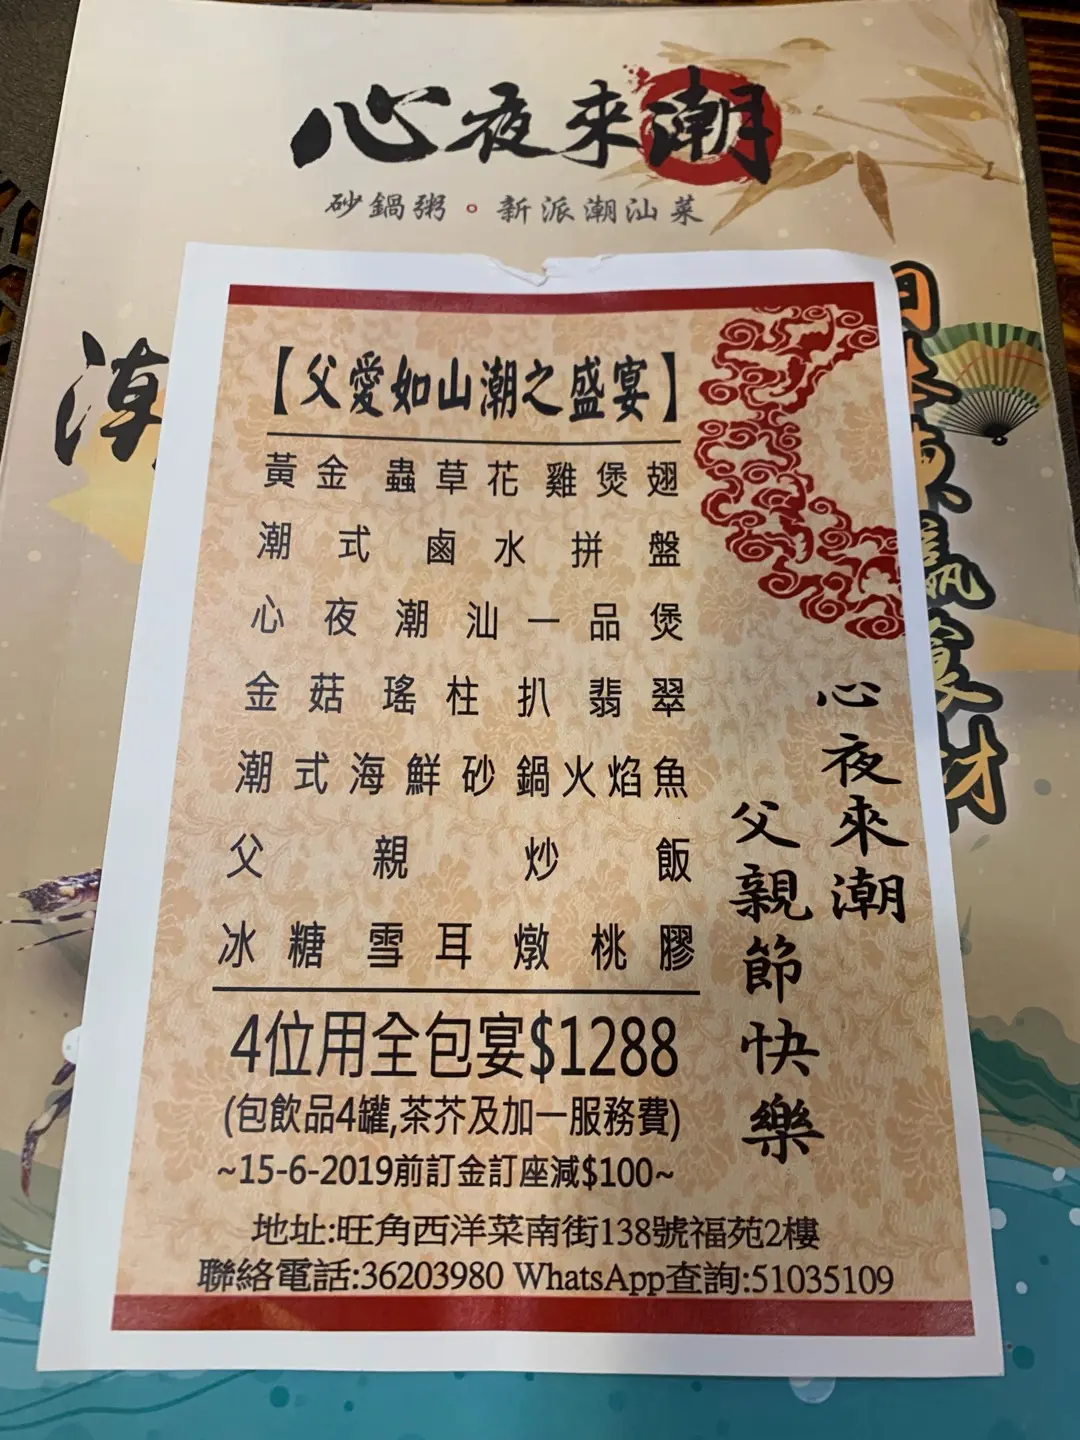 心夜來潮
砂鍋粥。新派潮汕菜
【父愛如山潮之盛宴】
黃金 蟲草花 雞煲翅
潮式鹵水拼盤
心夜潮汕一品煲
金菇瑤柱扒翡翠
潮式海鮮砂鍋火焰魚
父親炒飯
冰糖雪耳燉桃膠
4位用全包宴$1288
(包飲品4罐,茶芥及加一服務費)
~15-6-2019前訂金訂座減$100~
心夜來潮
父親節快樂
地址:旺角西洋菜南街138號福苑2樓
聯絡電話:36203980 WhatsApp查詢:51035109